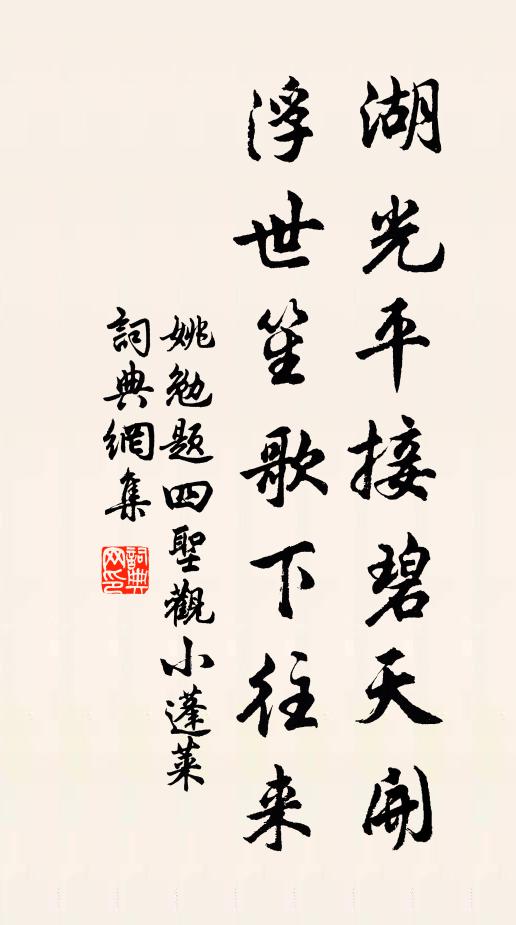 湖光平接碧天開
浮世笙歌下往来
姚勉題四聖觀小蓬萊
詞典網集
詞典網印